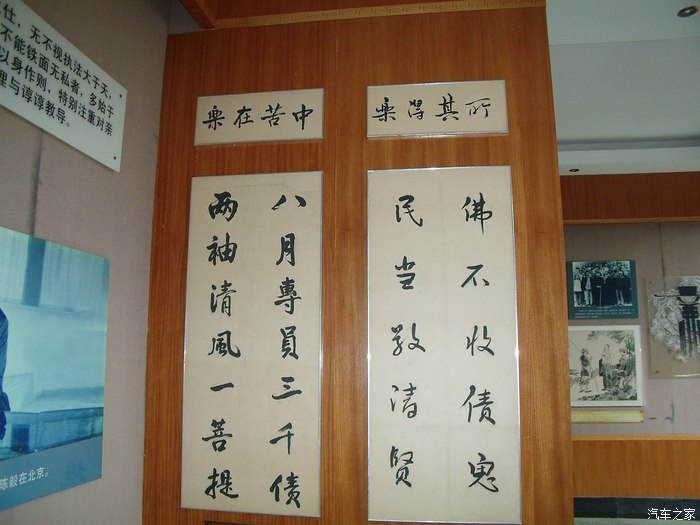 仕，无不视执法大于天，
不能铁面无私者，多始于
以身作则，特别注重对亲
理与谆谆教导。
樂在苦中
樂得其所
八月專員三千债
两袖清風一菩提
佛不收债鬼
民当敬清贤
陈毅在北京。
汽车之家